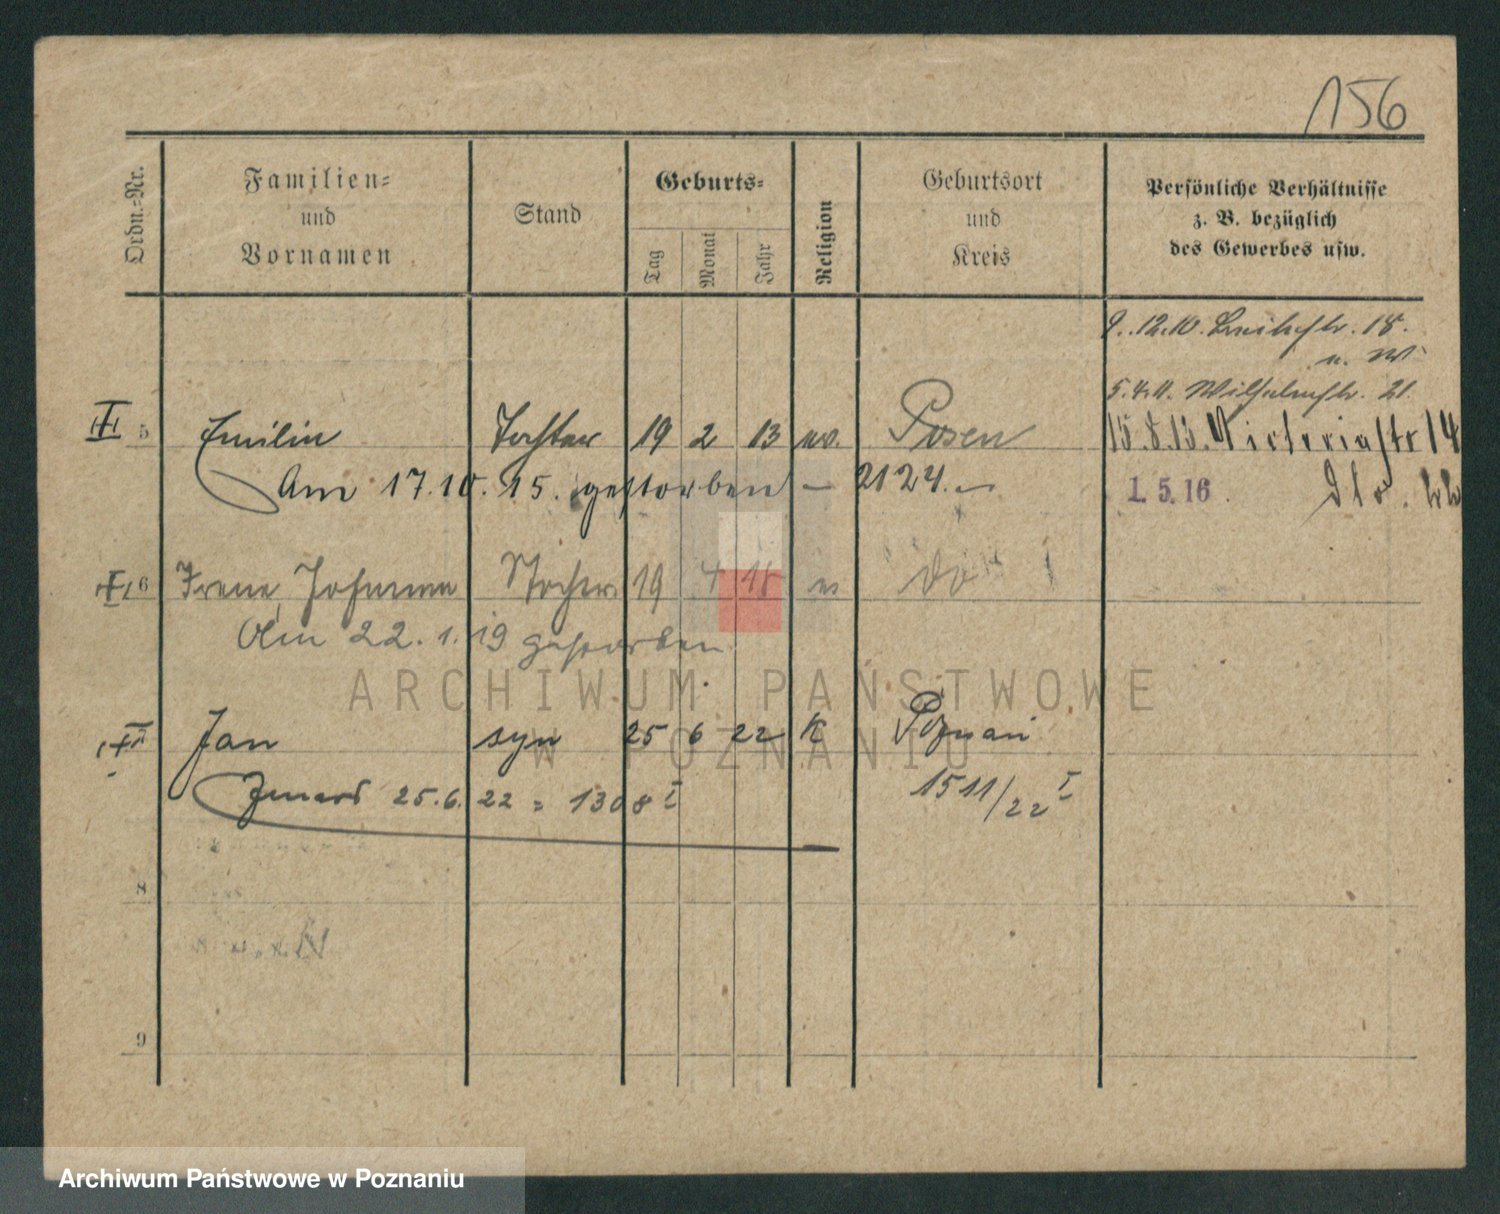 156
Ordn.-Nr.
Familien-
und
Vornamen
Stand
Geburts-
Tag
Monat
Jahr
Religion
Geburtsort
und
Kreis
Persönliche Verhältnisse
z. B. bezüglich
des Gewerbes usw.
9.12.10. 18.
5.4.11. Wilhelmstr. 21.
III 5 Emilie Tochter 19 2 13 ev. Posen 15.8.13. Victoriastr 14
Am 17.10.15. gestorben – 2124. – 1.5.16.
6 Irene, Johanna Tochter 19 4 18 do
Am 22.1.19 gestorben
Jan syn 25 6 22 K Poznań
Zmarł 25.6.22 = 1308 I 1511/22 I
8
9
ARCHIWUM PAŃSTWOWE
W POZNANIU
Archiwum Państwowe w Poznaniu